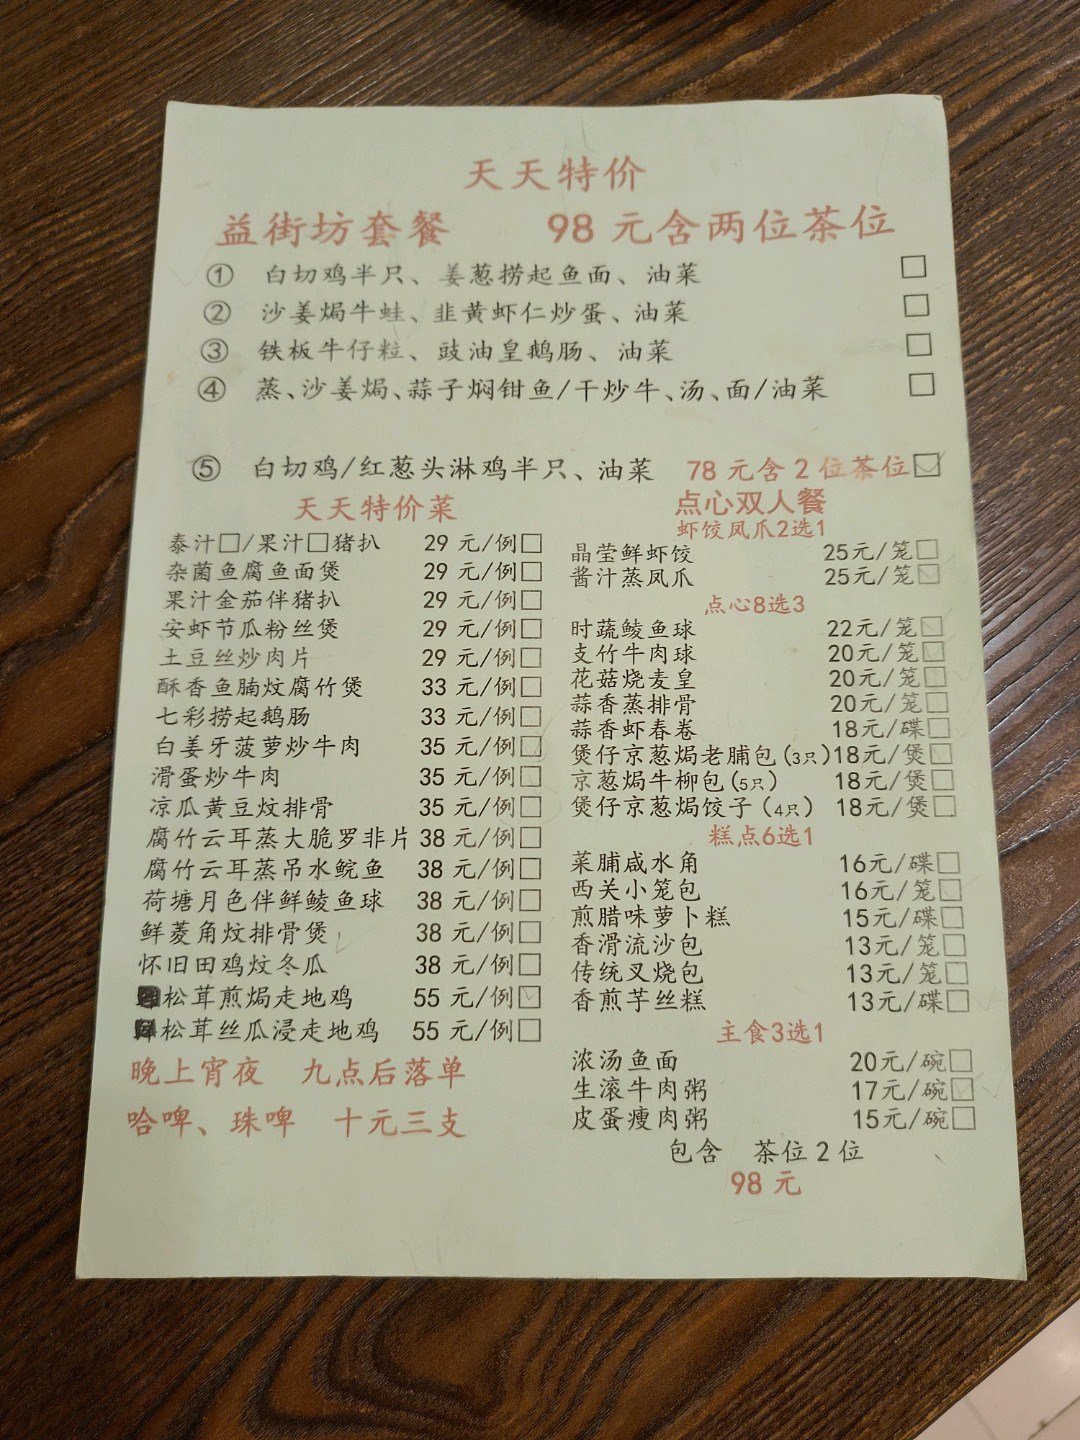 天天特价
益街坊套餐 98 元含两位茶位
① 白切鸡半只、姜葱捞起鱼面、油菜 □
② 沙姜焗牛蛙、韭黄虾仁炒蛋、油菜 □
③ 铁板牛仔粒、豉油皇鹅肠、油菜 □
④ 蒸、沙姜焗、蒜子焖钳鱼/干炒牛、汤、面/油菜 □
⑤ 白切鸡/红葱头淋鸡半只、油菜 78 元含 2 位茶位□
天天特价菜
泰汁□/果汁□猪扒 29 元/例□
杂菌鱼腐鱼面煲 29 元/例□
果汁金茄伴猪扒 29 元/例□
安虾节瓜粉丝煲 29 元/例□
土豆丝炒肉片 29 元/例□
酥香鱼腩炆腐竹煲 33 元/例□
七彩捞起鹅肠 33 元/例□
白姜牙菠萝炒牛肉 35 元/例□
滑蛋炒牛肉 35 元/例□
凉瓜黄豆炆排骨 35 元/例□
腐竹云耳蒸大脆罗非片 38 元/例□
腐竹云耳蒸吊水鲩鱼 38 元/例□
荷塘月色伴鲜鲮鱼球 38 元/例□
鲜菱角炆排骨煲 38 元/例□
怀旧田鸡炆冬瓜 38 元/例□
松茸煎焗走地鸡 55 元/例□
松茸丝瓜浸走地鸡 55 元/例□
晚上宵夜 九点后落单
哈啤、珠啤 十元三支
点心双人餐
虾饺凤爪2选1
晶莹鲜虾饺 25元/笼□
酱汁蒸凤爪 25元/笼□
点心8选3
时蔬鲮鱼球 22元/笼□
支竹牛肉球 20元/笼□
花菇烧麦皇 20元/笼□
蒜香蒸排骨 20元/笼□
蒜香虾春卷 18元/碟□
煲仔京葱焗老脯包(3只)18元/煲□
京葱焗牛柳包(5只) 18元/煲□
煲仔京葱焗饺子(4只) 18元/煲□
糕点6选1
菜脯咸水角 16元/碟□
西关小笼包 16元/笼□
煎腊味萝卜糕 15元/碟□
香滑流沙包 13元/笼□
传统叉烧包 13元/笼□
香煎芋丝糕 13元/碟□
主食3选1
浓汤鱼面 20元/碗□
生滚牛肉粥 17元/碗□
皮蛋瘦肉粥 15元/碗□
包含 茶位 2 位
98 元